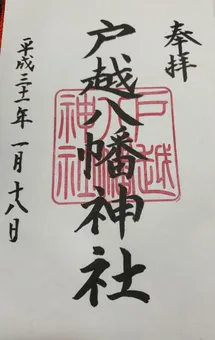 奉拝
戸越八幡神社
戸越
八幡
神社
平成三十一年一月十八日